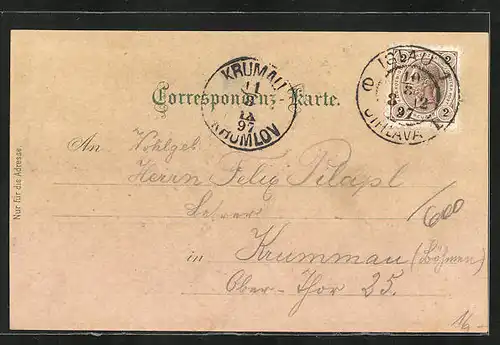 Correspondenz-Karte.
KRUMAU
11
8
97
KRUMLOV
IGLAU
10
8
97
JIHLAVA
2
2
Nur für die Adresse
An Wohlgeb.
Herrn Felix
in Krummau (Böhmen)
Ober-Thor 25.
600